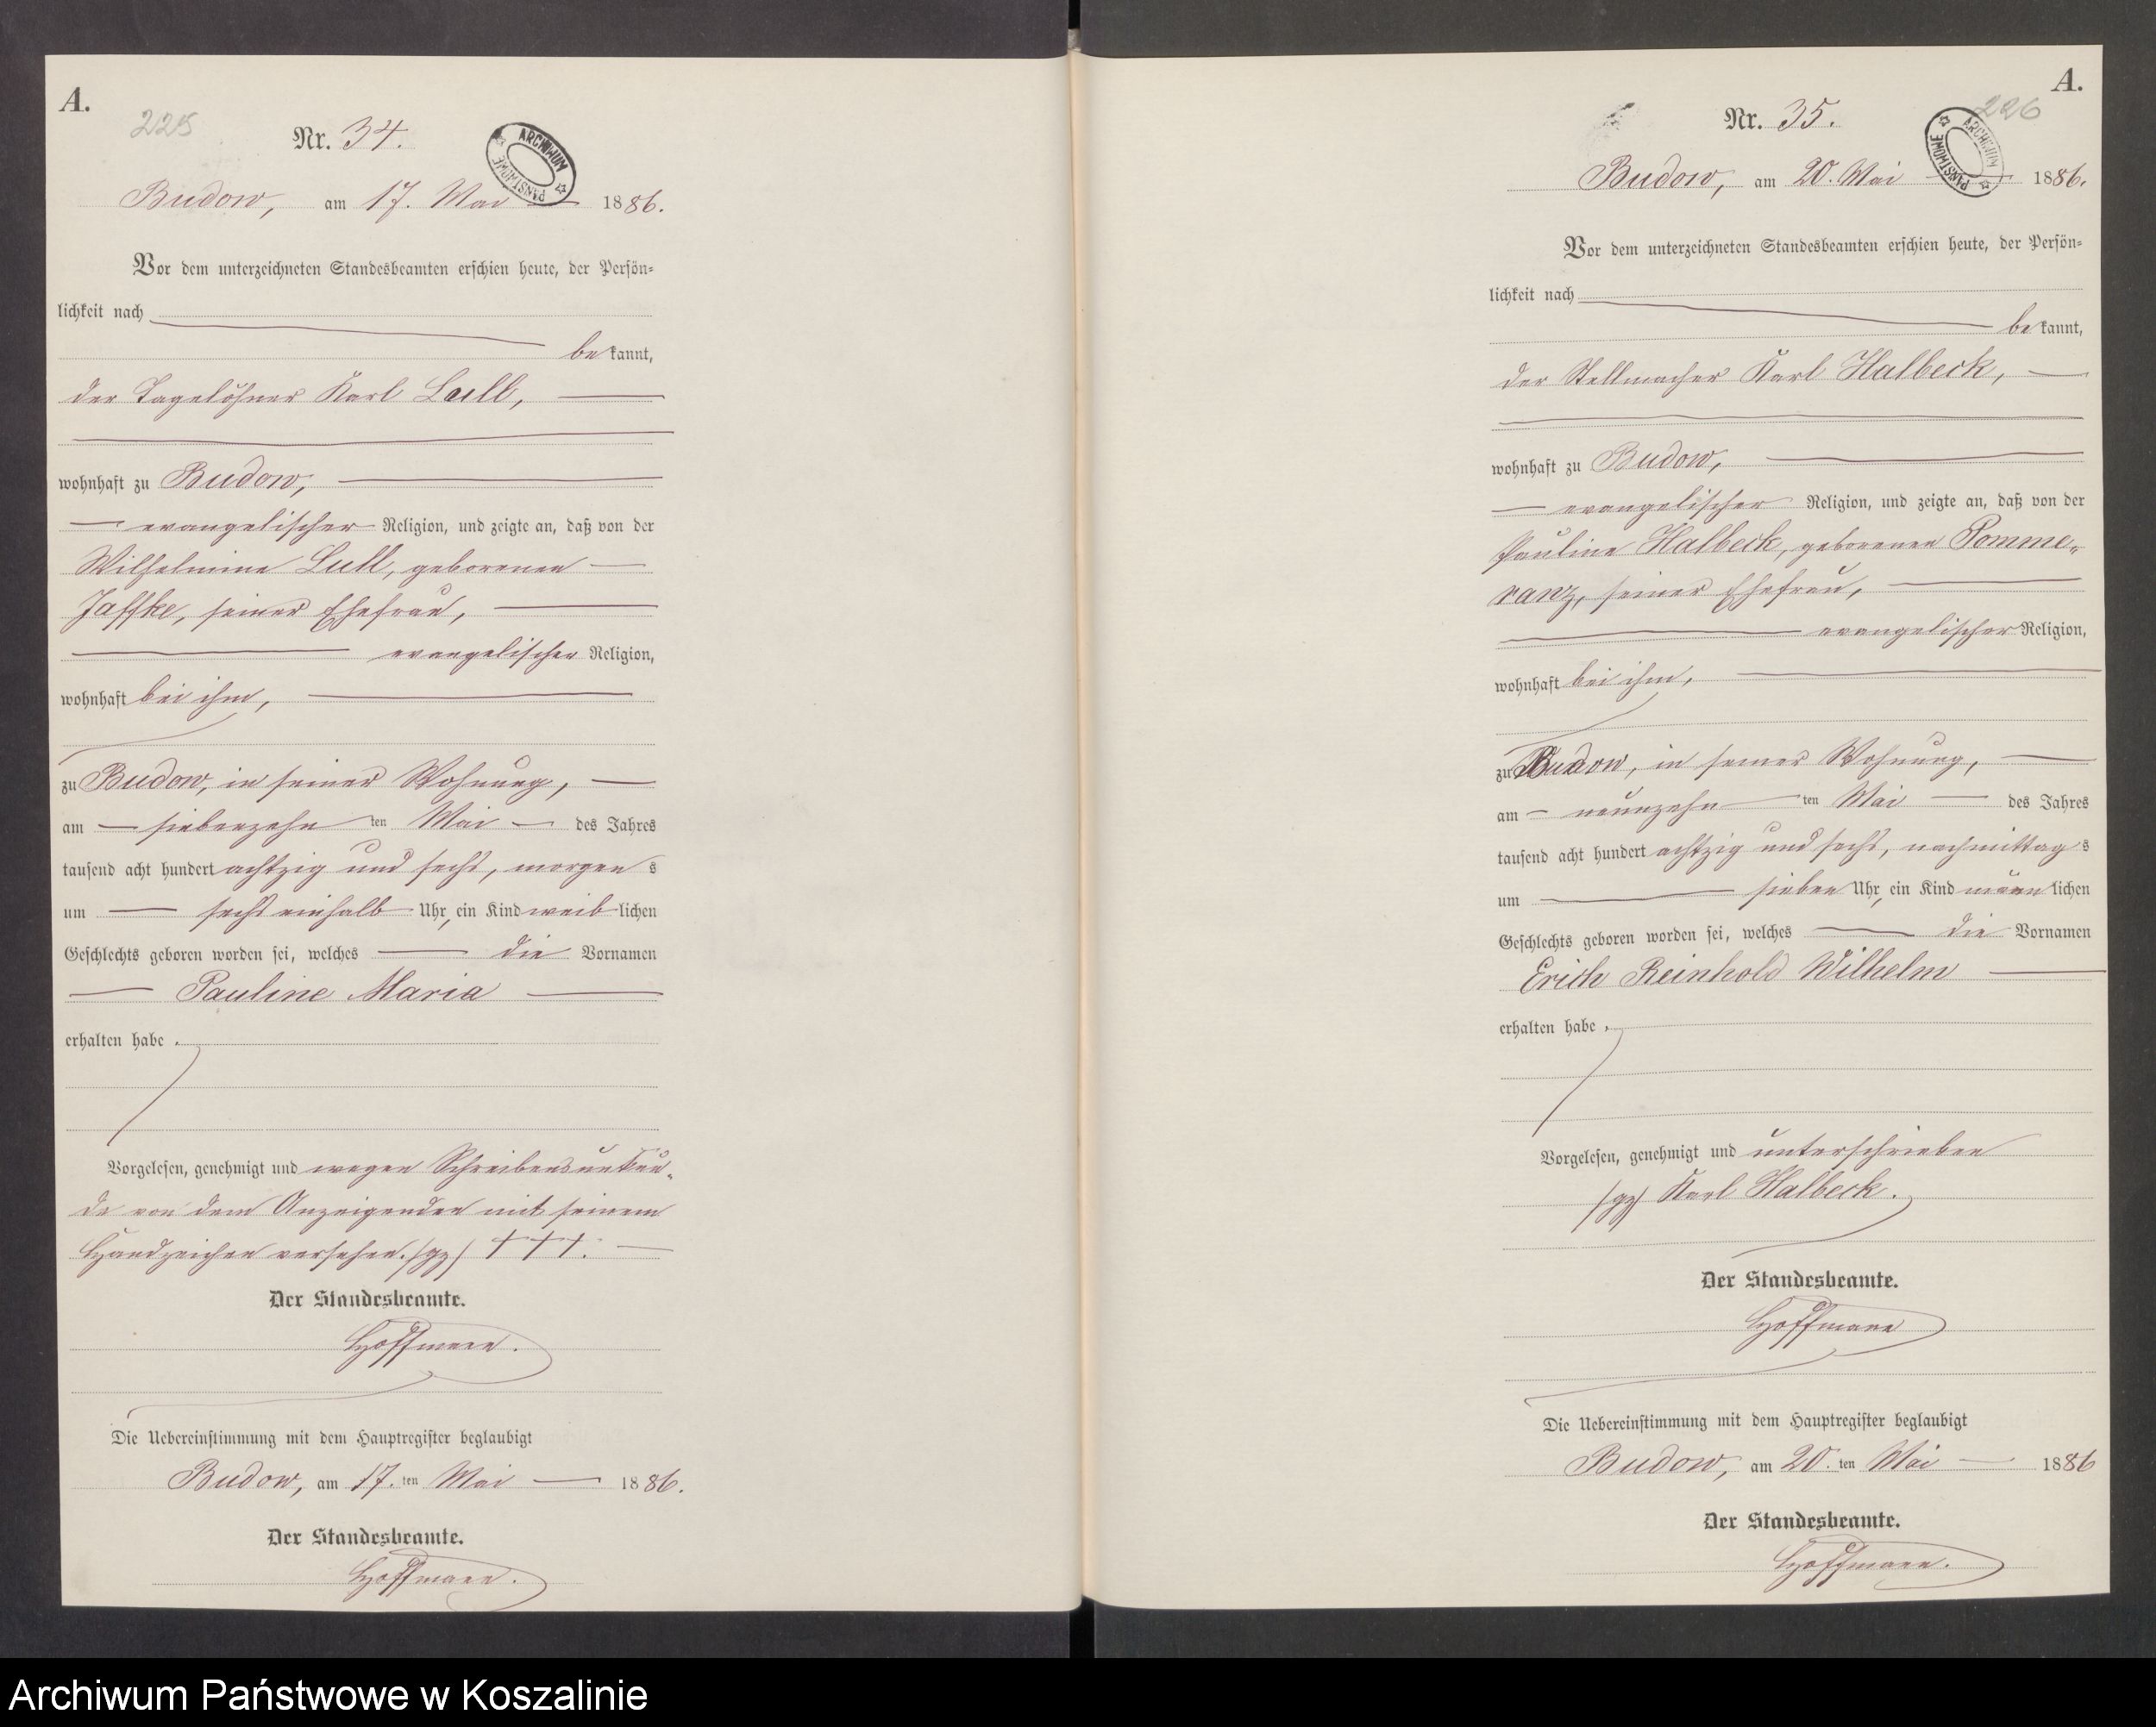 A.
225
Nr. 34.
ARCHIWUM PAŃSTWOWE
Budow, am 17. Mai 1886.
Vor dem unterzeichneten Standesbeamten erschien heute, der Persön-
lichkeit nach
bekannt,
der Tagelöhner Karl Lull,
wohnhaft zu Budow,
evangelischer Religion, und zeigte an, daß von der
Wilhelmine Lull, geborenen
Jaffke, seiner Ehefrau,
evangelischer Religion,
wohnhaft bei ihm,
zu Budow, in seiner Wohnung,
am siebenzehn ten Mai des Jahres
tausend acht hundert achtzig und sechs, morgens
um sechs einhalb Uhr, ein Kind weiblichen
Geschlechts geboren worden sei, welches die Vornamen
Pauline Maria
erhalten habe.
Vorgelesen, genehmigt und wegen Schreibensunkun-
de von dem Anzeigenden mit seinem
Handzeichen versehen. /gz/ +++.
Der Standesbeamte.
Hoffmann.
Die Uebereinstimmung mit dem Hauptregister beglaubigt
Budow, am 17. ten Mai 1886.
Der Standesbeamte.
Hoffmann.
A.
226
Nr. 35.
ARCHIWUM PAŃSTWOWE
Budow, am 20. Mai 1886.
Vor dem unterzeichneten Standesbeamten erschien heute, der Persön-
lichkeit nach
bekannt,
der Stellmacher Karl Halbeck,
wohnhaft zu Budow,
evangelischer Religion, und zeigte an, daß von der
Pauline Halbeck, geborenen Pomme-
ranz, seiner Ehefrau,
evangelischer Religion,
wohnhaft bei ihm,
zu Budow, in seiner Wohnung,
am neunzehn ten Mai des Jahres
tausend acht hundert achtzig und sechs, nachmittags
um sieben Uhr, ein Kind männlichen
Geschlechts geboren worden sei, welches die Vornamen
Erich Reinhold Wilhelm
erhalten habe.
Vorgelesen, genehmigt und unterschrieben
/gz/ Karl Halbeck.
Der Standesbeamte.
Hoffmann
Die Uebereinstimmung mit dem Hauptregister beglaubigt
Budow, am 20. ten Mai 1886
Der Standesbeamte.
Hoffmann.
Archiwum Państwowe w Koszalinie